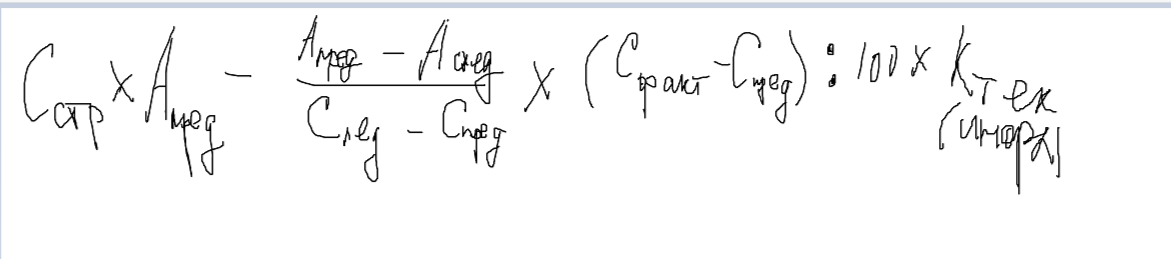 Cстр x Aпред - (Aпред - Aслед) / (Cслед - Cпред) x (Cфакт - Cпред) : 100 x Kтех